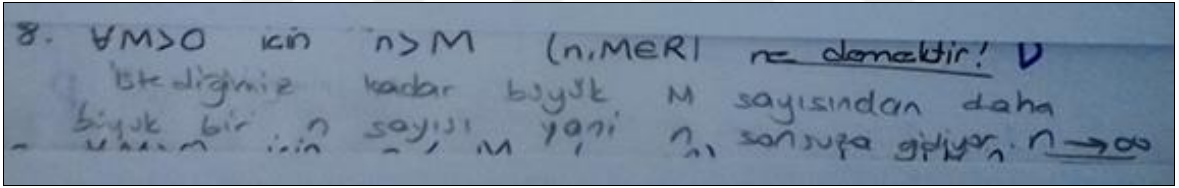 8. ∀M>0 icin n>M (n,M∈R) ne demektir! D
istediğimiz kadar büyük M sayısından daha
büyük bir n sayısı yani n, sonsuza gidiyor. n→∞